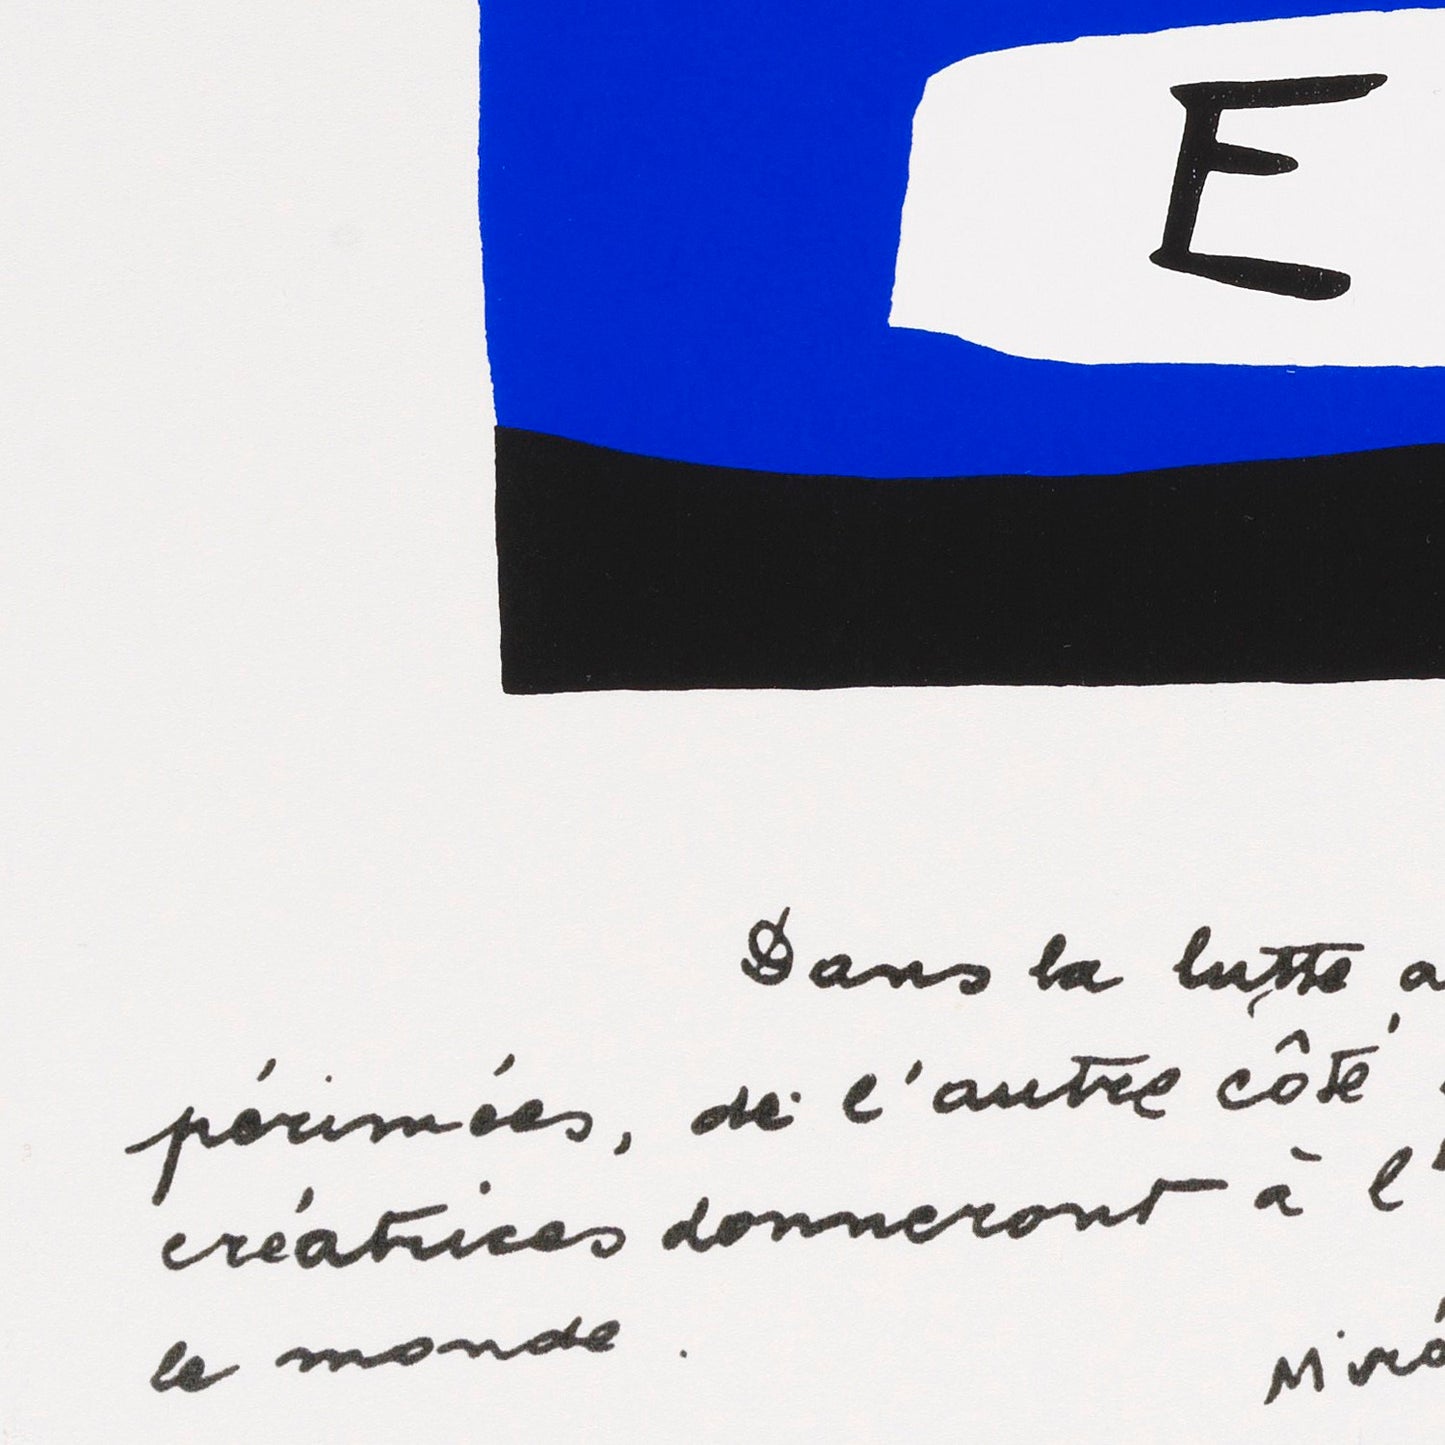 E
Dans la lutte a
périmées, de l'autre côté
créatrices donneront à l'
le monde.
Miró